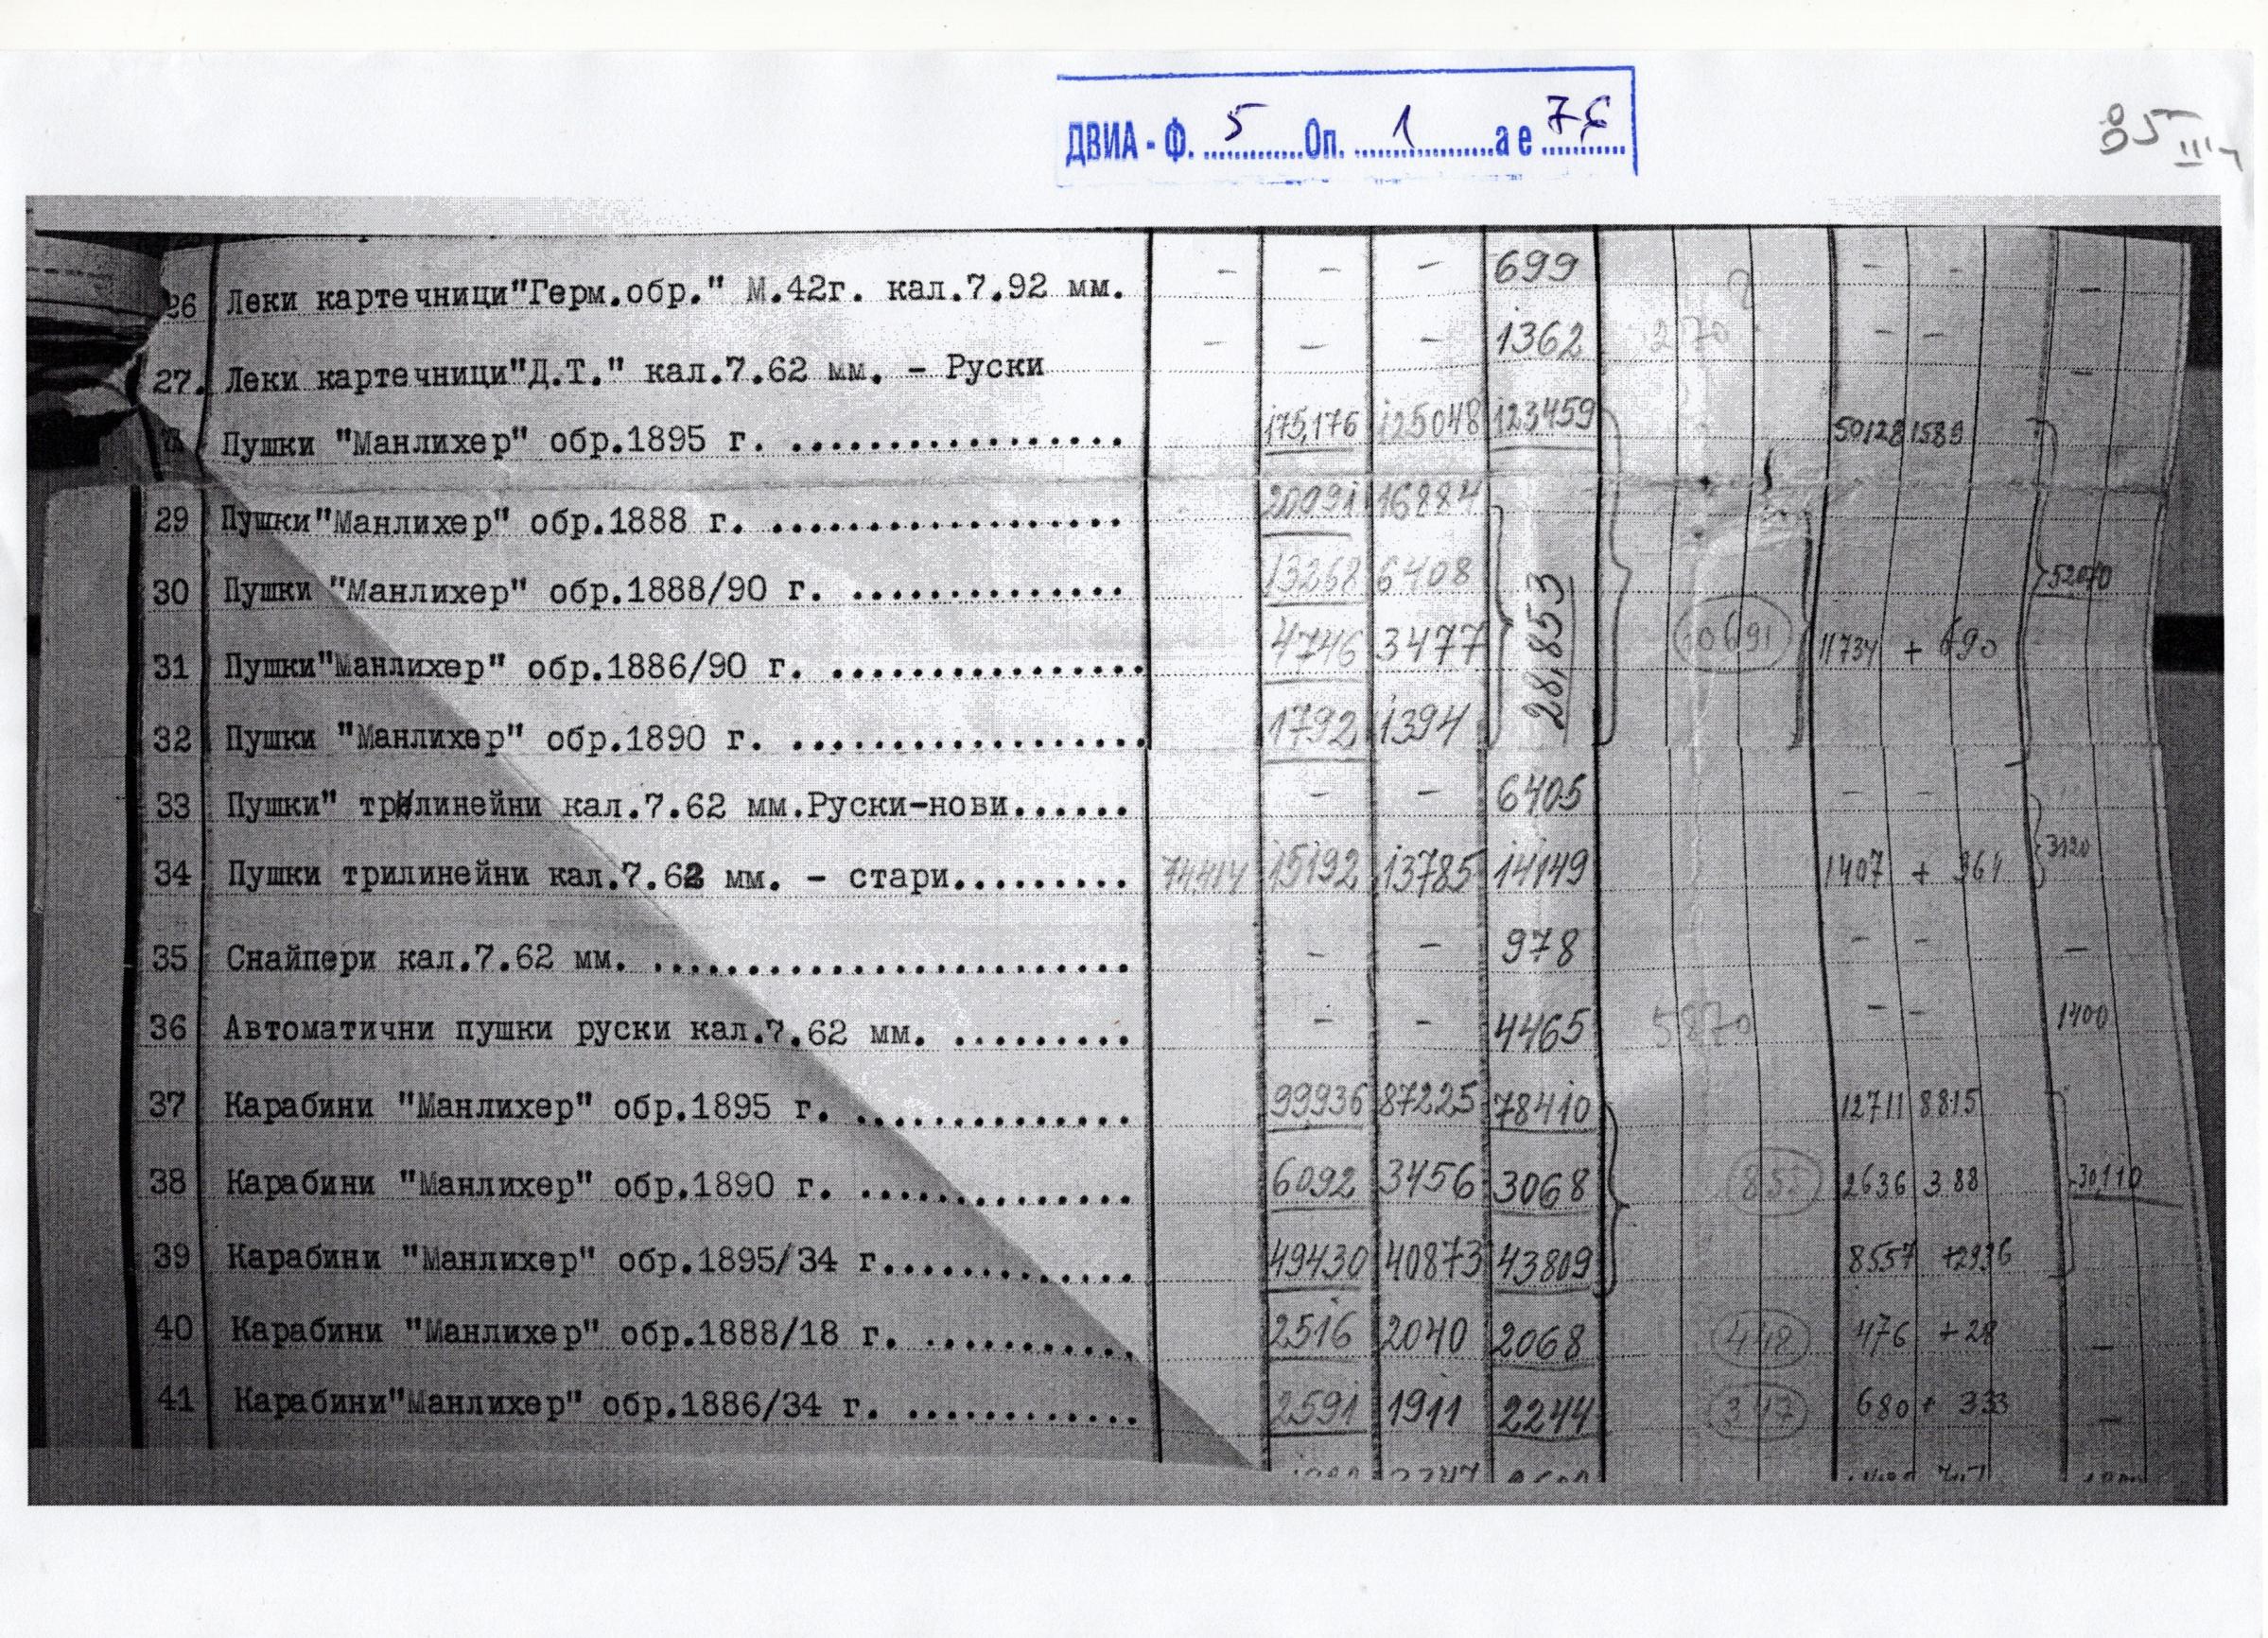 ДВИА - Ф. 5 Оп. 1 а е 76
85
26 Леки картечници"Герм.обр." М.42г. кал.7.92 мм. - - - 699 - - -
27. Леки картечници"Д.Т." кал.7.62 мм. - Руски - - - 1362 - - -
Пушки "Манлихер" обр.1895 г. .................. 175,176 125048 123459 50128 1589
29 Пушки"Манлихер" обр.1888 г. ................... 20091 16884
30 Пушки "Манлихер" обр.1888/90 г. ............... 13268 6408 28,853 52070
31 Пушки"Манлихер" обр.1886/90 г. ................ 4746 3477 11734 + 690
32 Пушки "Манлихер" обр.1890 г. ................... 1792 1394
33 Пушки" трилинейни кал.7.62 мм.Руски-нови...... - - 6405 - -
34 Пушки трилинейни кал.7.62 мм. - стари......... 74,414 15192 13785 14149 1407 + 364 3120
35 Снайпери кал.7.62 мм. .......................... - - 978 - - -
36 Автоматични пушки руски кал.7.62 мм. ......... - - 4465 5870 - - 1400
37 Карабини "Манлихер" обр.1895 г. .............. 99936 87225 78410 12711 8815
38 Карабини "Манлихер" обр.1890 г. .............. 6092 3456 3068 855 2636 388 30,110
39 Карабини "Манлихер" обр.1895/34 г............. 49430 40873 43809 8557 +2936
40 Карабини "Манлихер" обр.1888/18 г. ........... 2516 2040 2068 448 476 +28 -
41 Карабини"Манлихер" обр.1886/34 г. ............ 2591 1911 2244 347 680 + 333 -